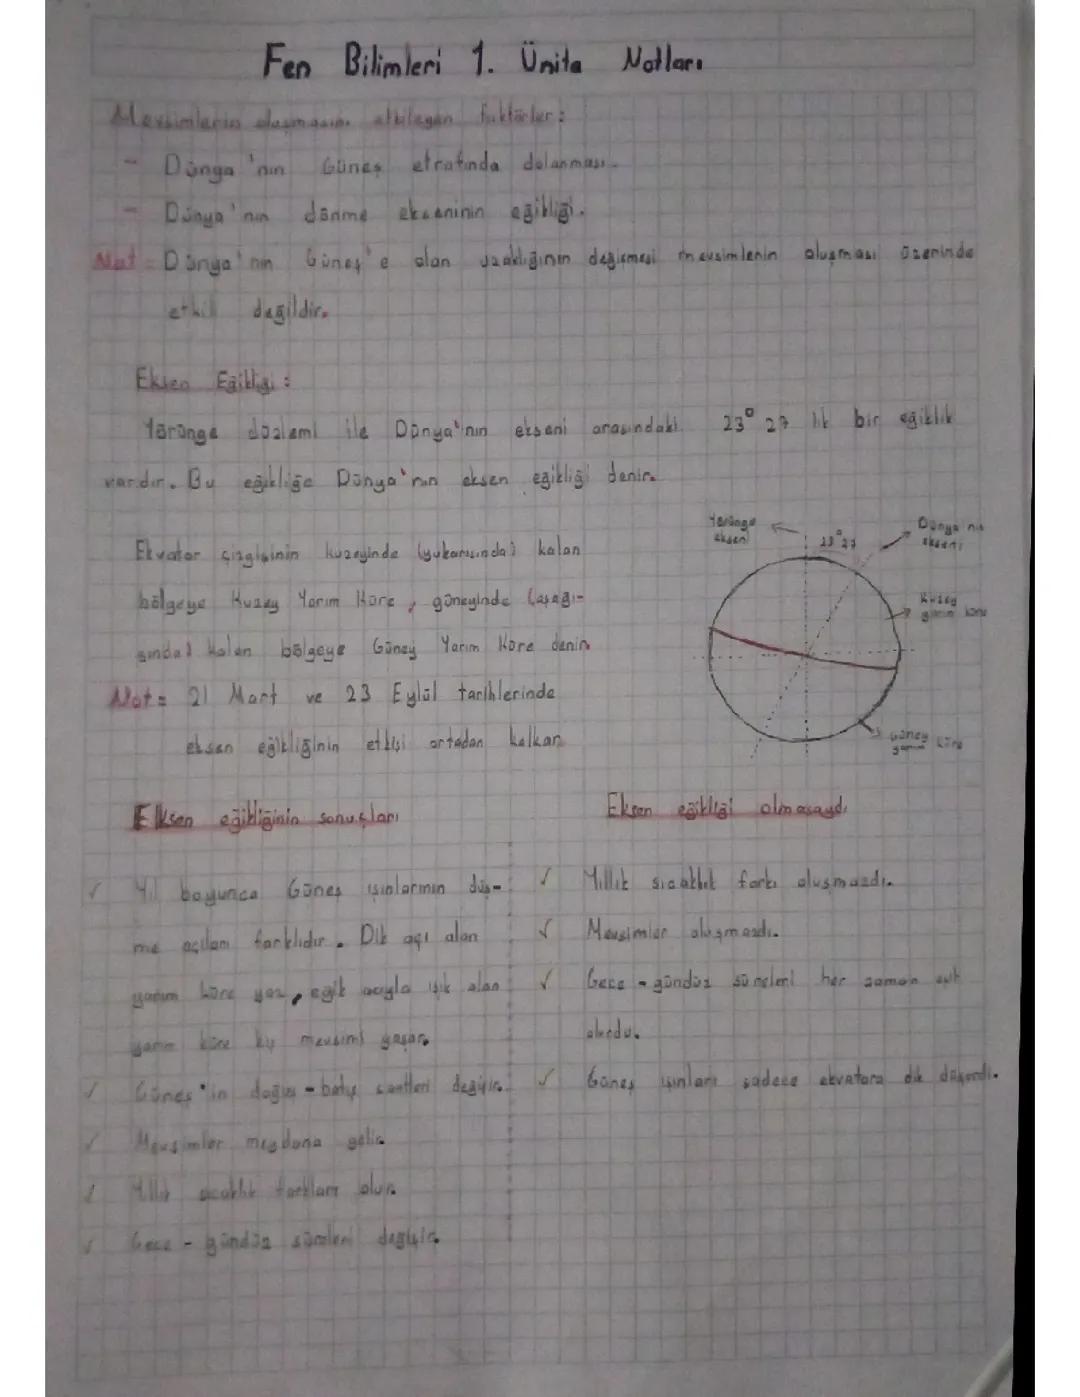 Fen Bilimleri 1. Ünite Notları
Mevsimlerin oluşmasını etkileyen faktörler:
- Dünya'nın Güneş etrafında dolanması.
- Dünya'nın dönme ekseninin eğikliği.
Not: Dünya'nın Güneş'e olan uzaklığının değişmesi mevsimlerin oluşması üzerinde
etkili değildir.
Eksen Eğikliği:
Yörünge düzlemi ile Dünya'nın ekseni arasındaki 23° 27 lik bir eğiklik
vardır. Bu eğikliğe Dünya'nın eksen eğikliği denir.
Yörünge
ekseni
23° 27
Dünya'nın
ekseni
Kuzey
yarım küre
Güney
yarım küre
Ekvator çizgisinin kuzeyinde (yukarısında) kalan
bölgeye Kuzey Yarım Küre, güneyinde (aşağı-
sında) kalan bölgeye Güney Yarım Küre denir.
Not: 21 Mart ve 23 Eylül tarihlerinde
eksen eğikliğinin etkisi ortadan kalkar.
Eksen eğikliğinin sonuçları
✓ Yıl boyunca Güneş ışınlarının düş-
me açıları farklıdır. Dik açı alan
yarım küre yaz, eğik açıyla ışık alan
yarım küre kış mevsimi yaşar.
✓ Güneş'in doğuş-batış saatleri değişir.
✓ Mevsimler meydana gelir.
✓ Yıllık sıcaklık farkları olur.
✓ Gece-gündüz süreleri değişir.
Eksen eğikliği olmasaydı
✓ Yıllık sıcaklık farkı oluşmazdı.
✓ Mevsimler oluşmazdı.
✓ Gece-gündüz süreleri her zaman eşit
olurdu.
✓ Güneş ışınları sadece ekvatora dik düşerdi.